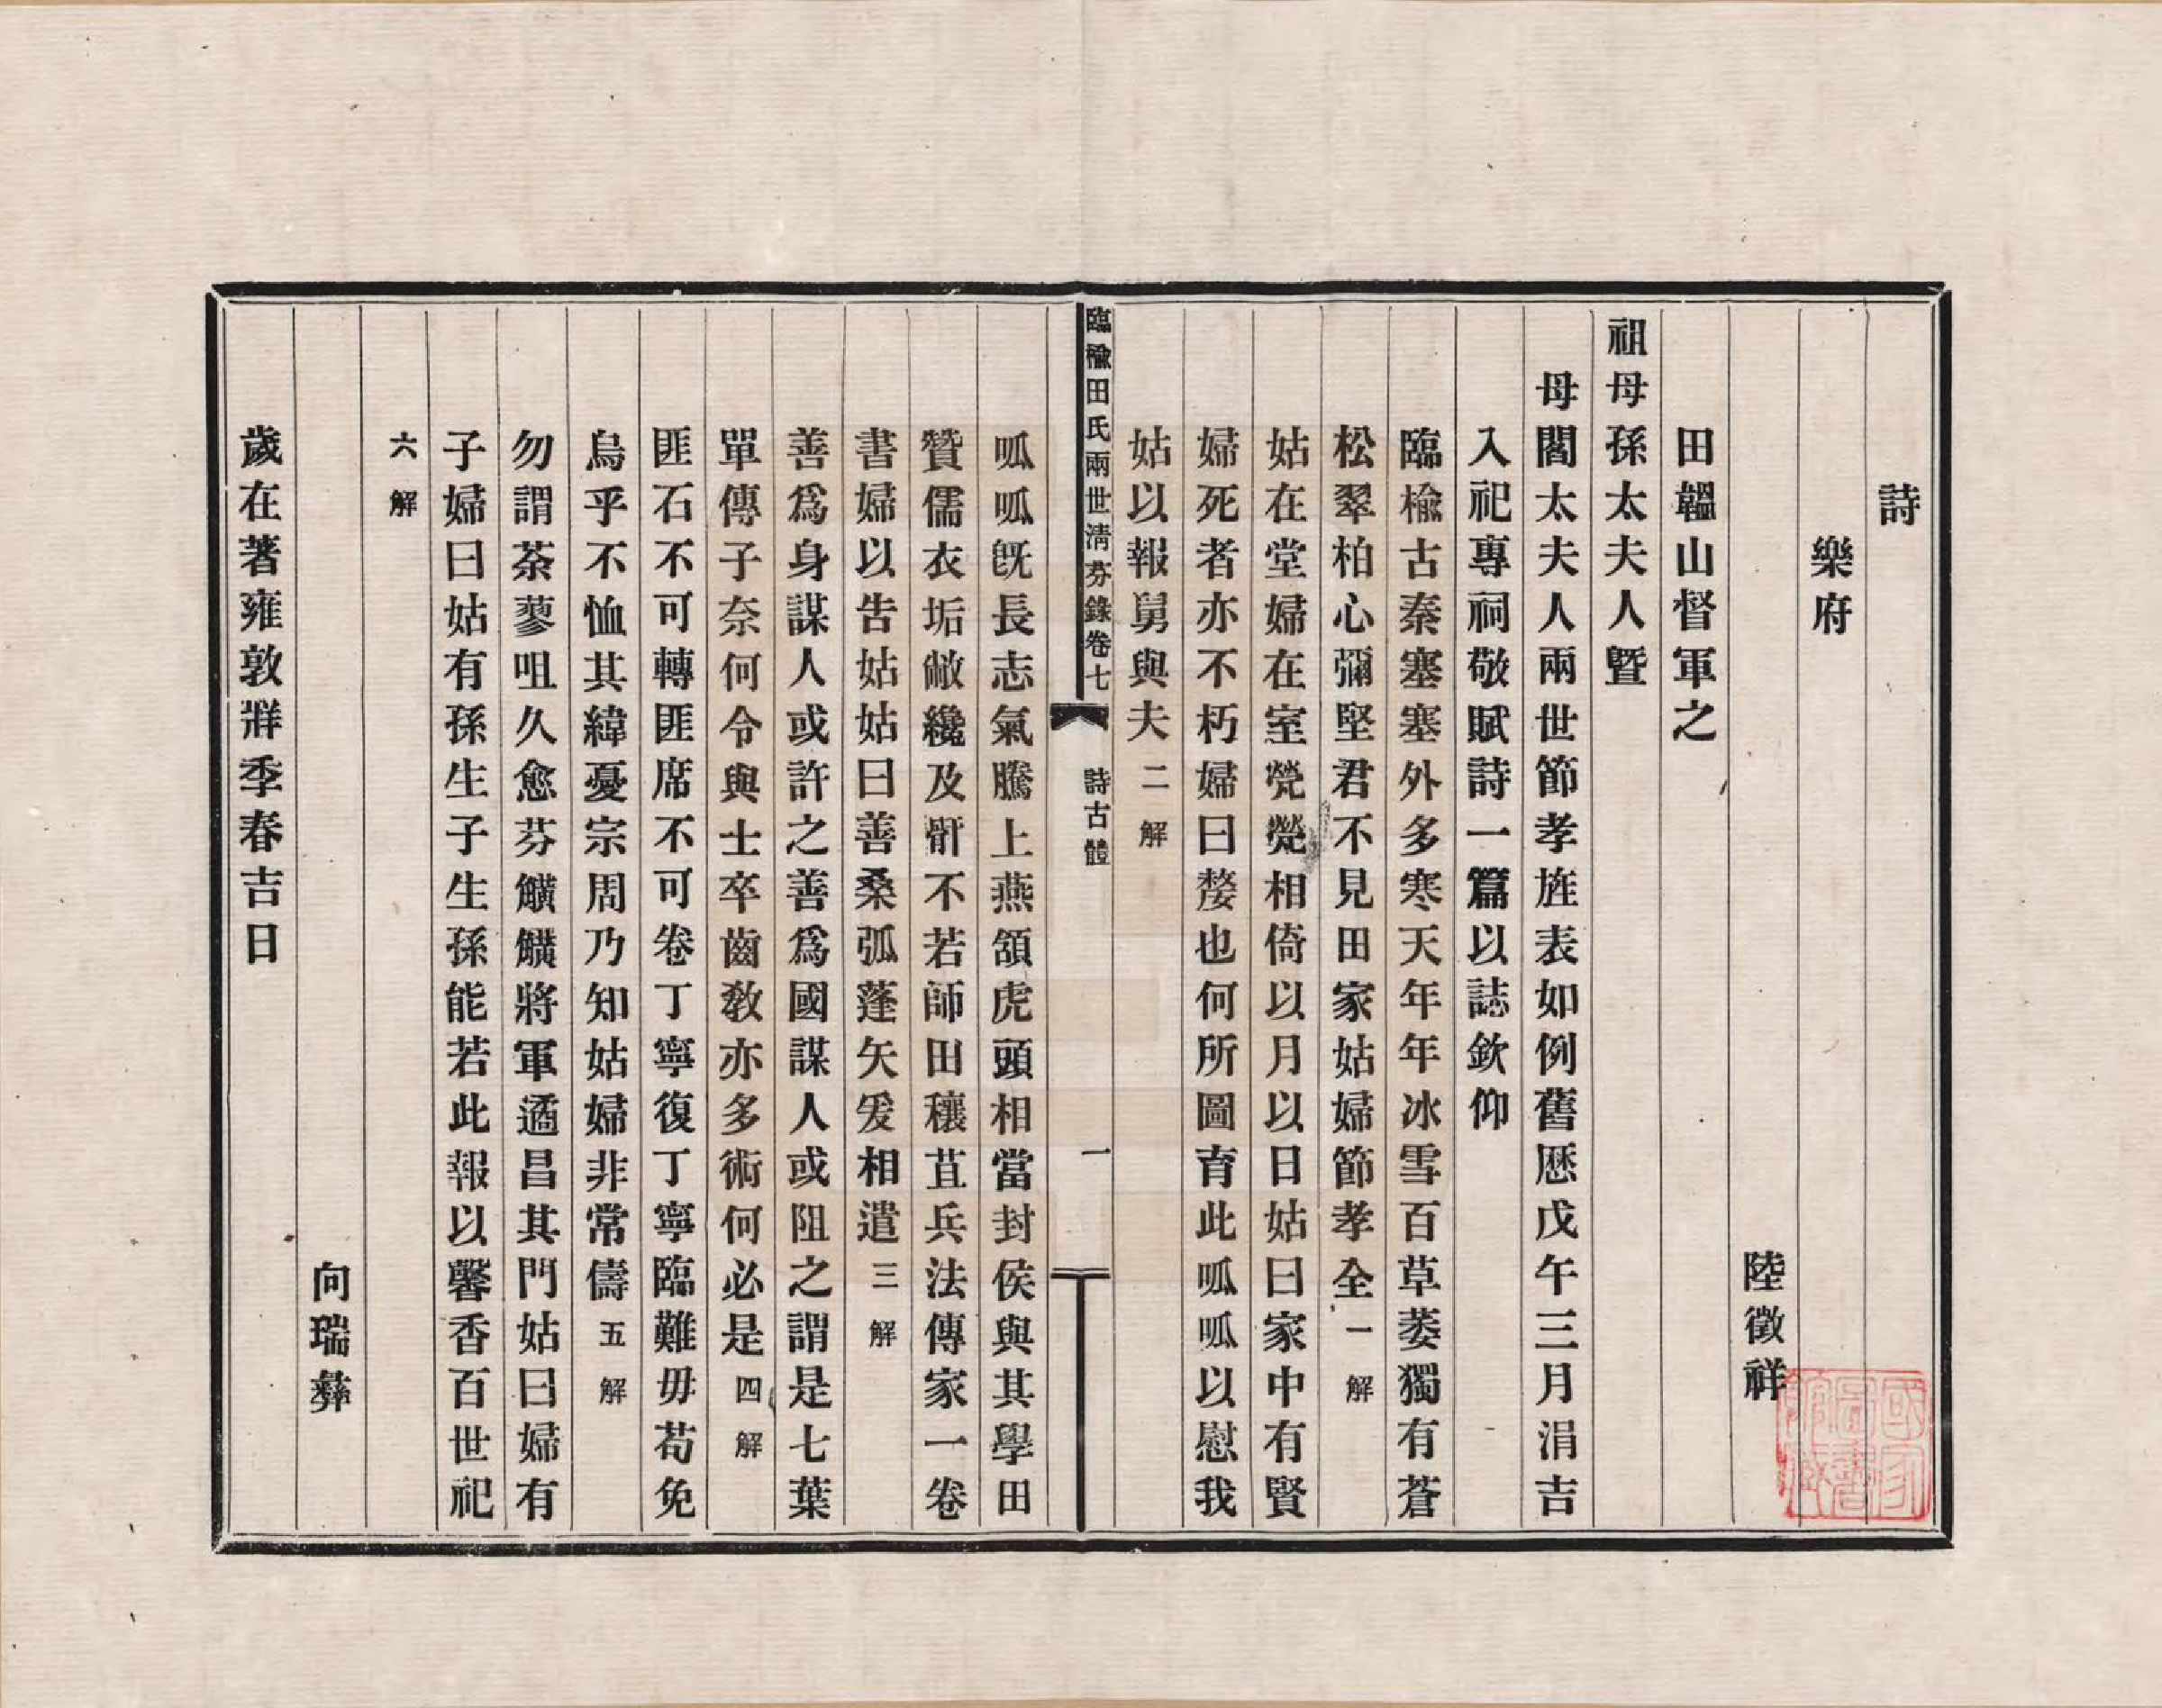 詩
樂府
陸徵祥
田韞山督軍之
祖母孫太夫人曁
母閻太夫人兩世節孝旌表如例舊歷戊午三月涓吉
入祀專祠敬賦詩一篇以誌欽仰
臨楡古秦塞塞外多寒天年年冰雪百草萎獨有蒼
松翠柏心彌堅君不見田家姑婦節孝全一解
姑在堂婦在室煢煢相倚以月以日姑曰家中有賢
婦死者亦不朽婦曰嫠也何所圖育此呱呱以慰我
姑以報舅與夫二解
臨楡田氏兩世淸芬錄卷七
詩古體
一
呱呱旣長志氣騰上燕頷虎頭相當封侯與其學田
贊儒衣垢敝纔及骭不若師田穰苴兵法傳家一卷
書婦以告姑姑曰善桑弧蓬矢爰相遣三解
善爲身謀人或許之善爲國謀人或阻之謂是七葉
單傳子奈何令與士卒齒敎亦多術何必是四解
匪石不可轉匪席不可卷丁寧復丁寧臨難毋苟免
烏乎不恤其緯憂宗周乃知姑婦非常儔五解
勿謂荼蓼咀久愈芬觵觵將軍遹昌其門姑曰婦有
子婦曰姑有孫生子生孫能若此報以馨香百世祀
六解
向瑞彝
歲在著雍敦牂季春吉日
國家圖書館藏